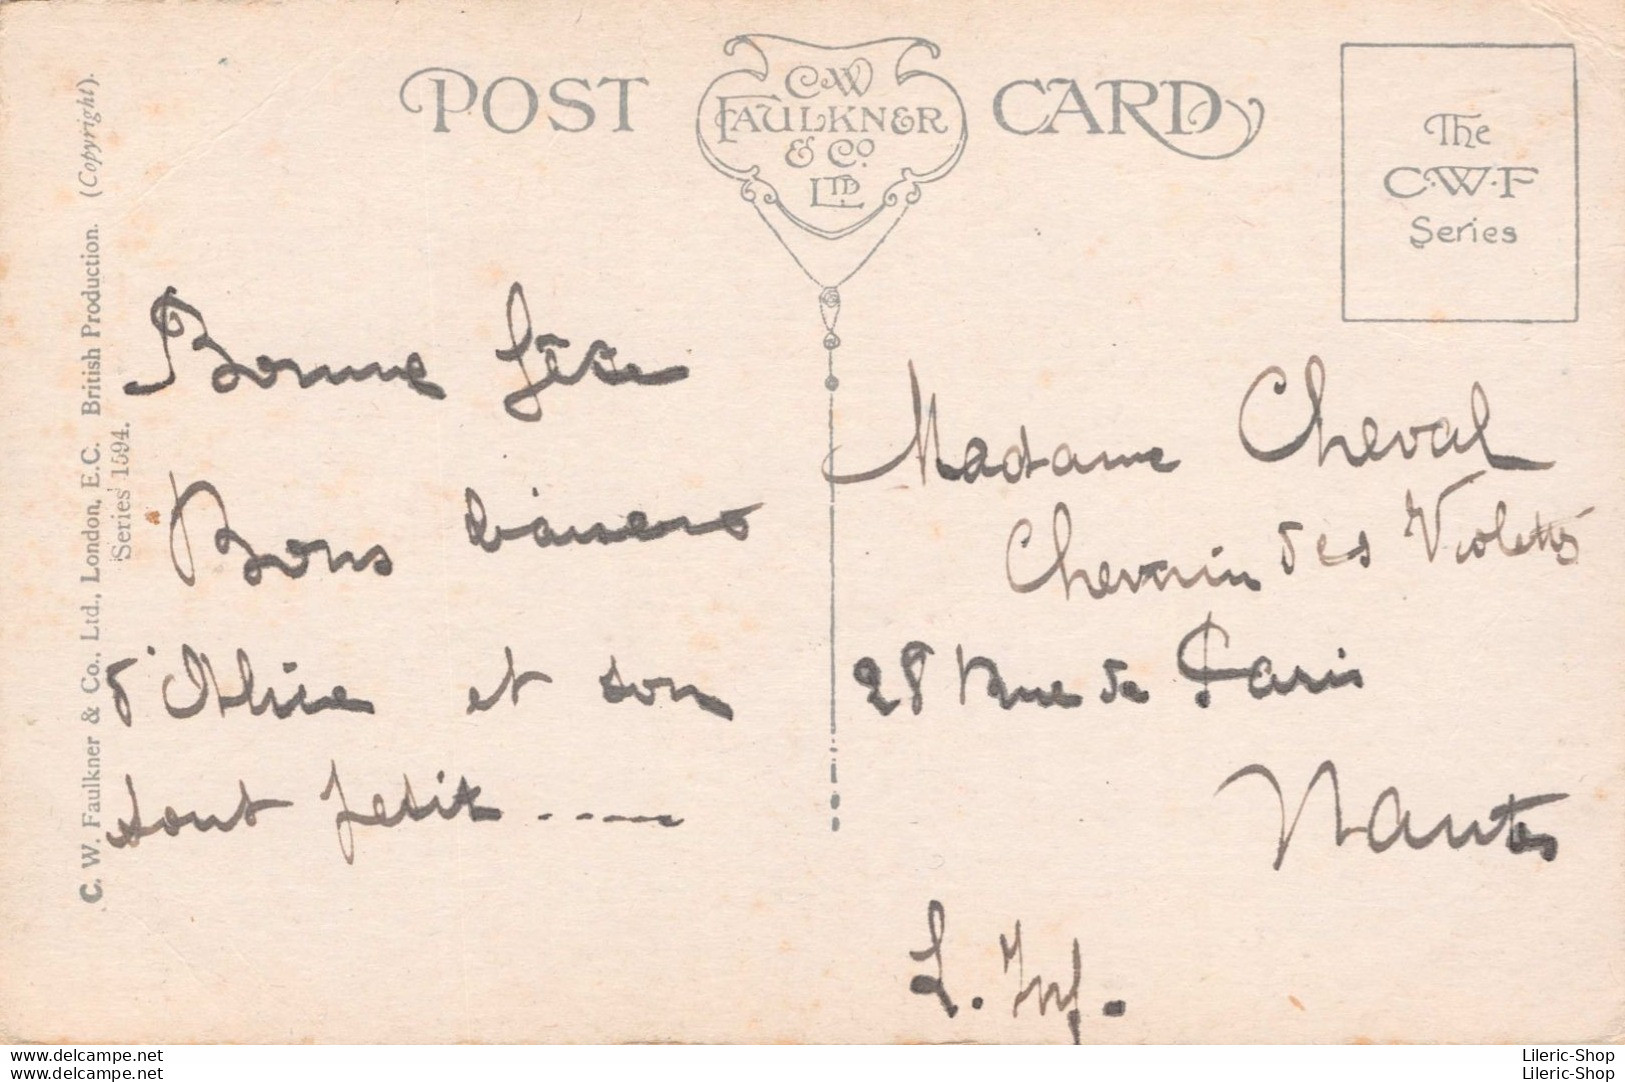 POST CARD
C.W
FAULKNER
& Co.
LTD
The
C.W.F
Series
C. W. Faulkner & Co., Ltd., London, E.C. British Production. (Copyright).
Series 1594.
Bonne fête
Bons baisers
d'Aline et son
tout petit ----
Madame Cheval
Chemin des Violettes
28 Rue de Paris
Nantes
L. Inf.
www.delcampe.net Lileric-Shop
www.delcampe.net Lileric-Shop